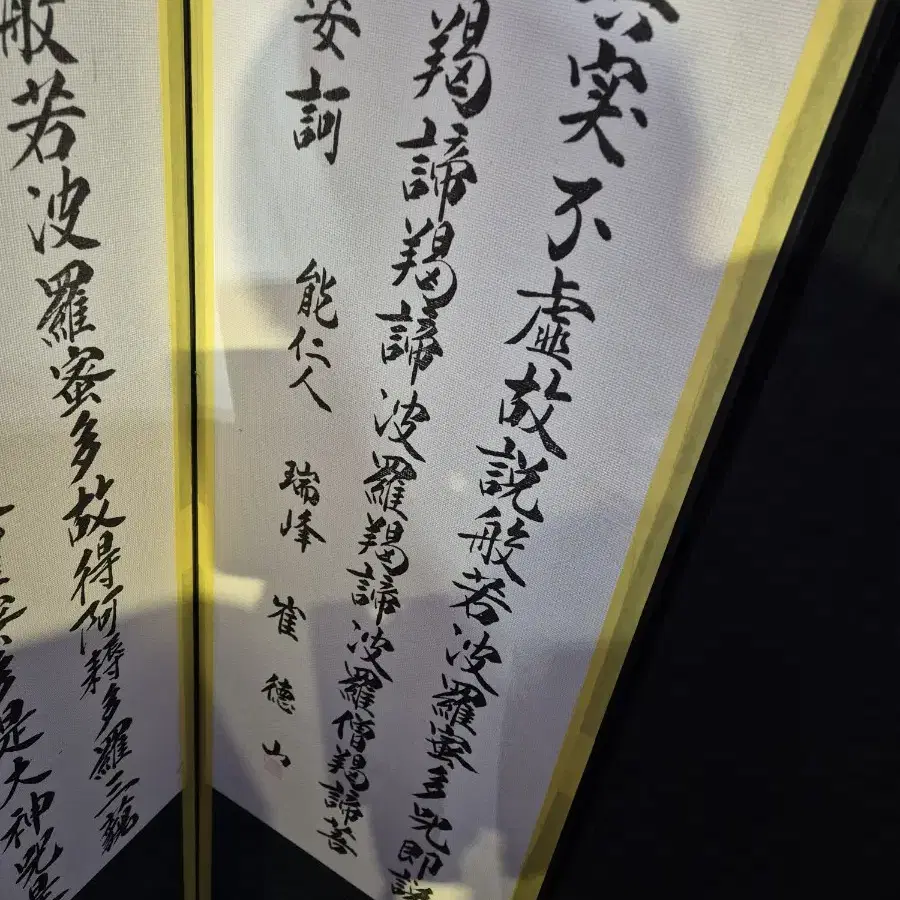 實不虛故說般若波羅蜜多呪即說
羯諦羯諦波羅羯諦波羅僧羯諦菩
訶 能仁人 瑞峰 崔德山
般若波羅蜜多故得阿耨多羅三藐
蜜多是大神呪是